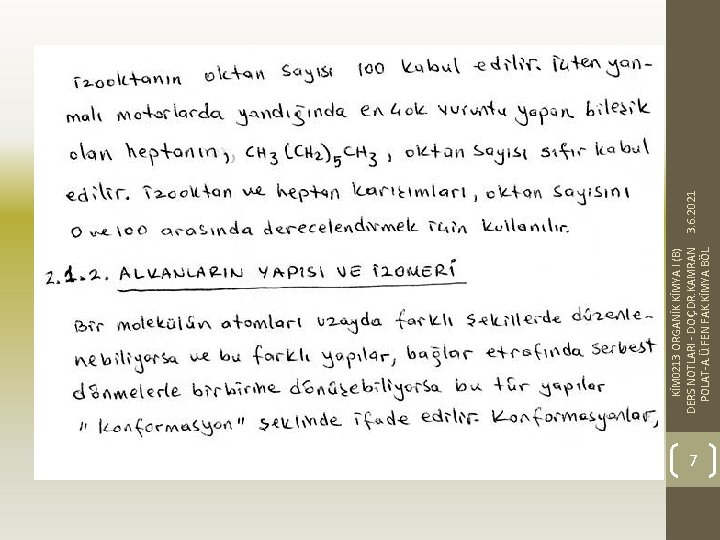 izooktanın oktan sayısı 100 kabul edilir. İçten yan-
malı motorlarda yandığında en çok vuruntu yapan bileşik
olan heptanın, CH3(CH2)5CH3, oktan sayısı sıfır kabul
edilir. İzooktan ve heptan karışımları, oktan sayısını
0 ve 100 arasında derecelendirmek için kullanılır.
2.1.2. ALKANLARIN YAPISI VE İZOMERİ
Bir molekülün atomları uzayda farklı şekillerde düzenle-
nebiliyorsa ve bu farklı yapılar, bağlar etrafında serbest
dönmelerle birbirine dönüşebiliyorsa bu tür yapılar
"konformasyon" şeklinde ifade edilir. Konformasyonlar,
KİM0213 ORGANİK KİMYA I (B)
DERS NOTLARI - DOÇ.DR.KAMRAN
POLAT-A.Ü.FEN FAK.KİMYA BÖL
3.6.2021
7